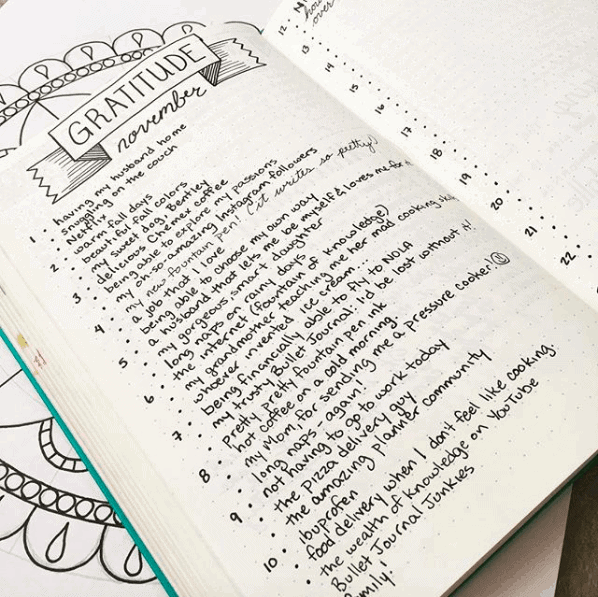 GRATITUDE
november
1. • having my husband home
• snuggling on the couch
• Netflix
2. • warm fall days
• beautiful fall colors
• my sweet dog, Bentley
3. • delicious Chemex coffee
• being able to explore my passions
• my oh-so-amazing Instagram followers
4. • my new fountain pen! (it writes so pretty!)
• a job that I love
• being able to choose my own way
5. • a husband that lets me be myself & loves me for
• my gorgeous, smart daughter
• long naps on rainy days
6. • the internet (fountain of knowledge)
• my grandmother teaching me her mad cooking
• whoever invented ice cream...
7. • being financially able to fly to NOLA
• my trusty Bullet Journal: I'd be lost without it!
• pretty, pretty fountain pen ink
8. • hot coffee on a cold morning.
• my Mom, for sending me a pressure cooker!
• long naps - again!
9. • not having to go to work today
• the pizza delivery guy
• the amazing planner community
10. • ibuprofen
• food delivery when I don't feel like cooking.
• the wealth of knowledge on YouTube
• Bullet Journal Junkies
family!
12.
over
13
14
15
16
17
18
19
20
21
22